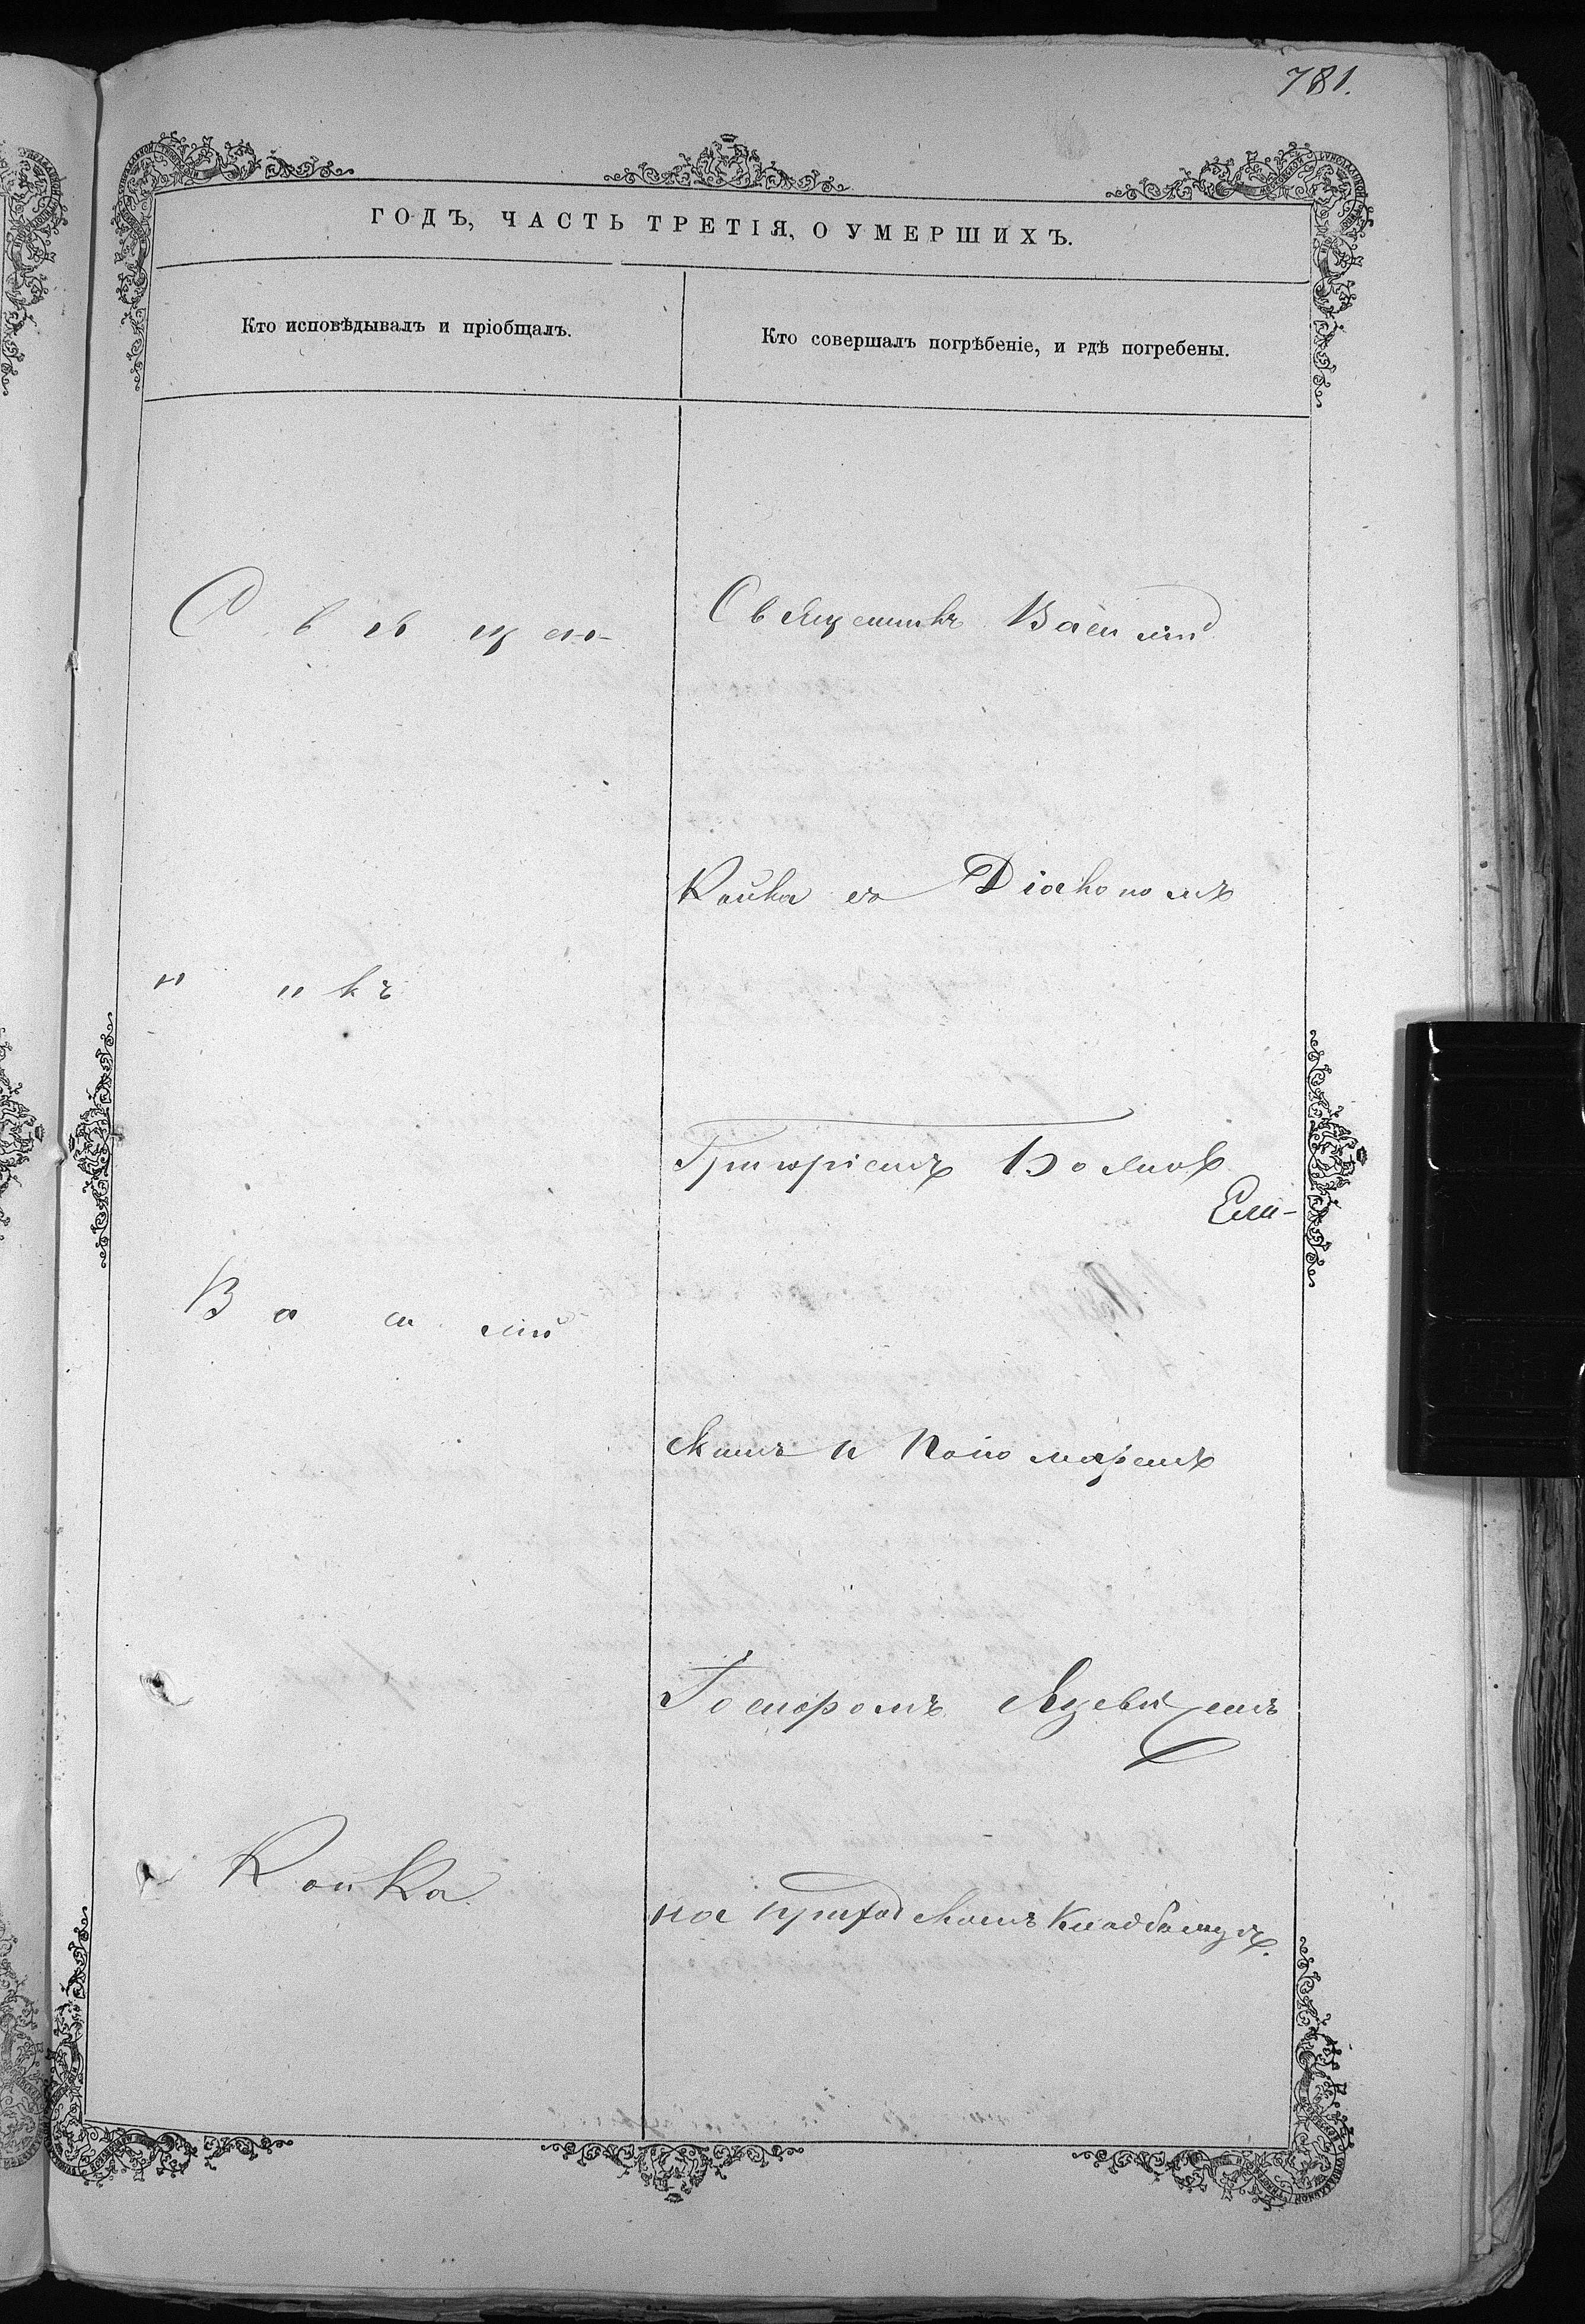 781.
ГОДЪ, ЧАСТЬ ТРЕТІЯ, О УМЕРШИХЪ.
Кто исповѣдывалъ и пріобщалъ.
Кто совершалъ погрѣбеніе, и гдѣ погребены.
Священ-
никъ
Василій
Койка
Священникъ Василій
Койка съ Діакономъ
Григоріемъ
скимъ и Пономаремъ
на приходскомъ Кладбищѣ.